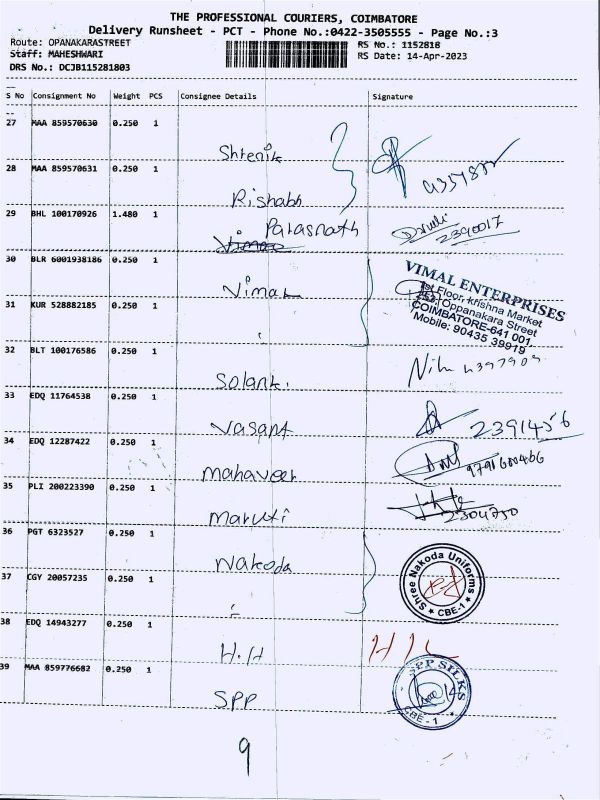 THE PROFESSIONAL COURIERS, COIMBATORE
Delivery Runsheet - PCT - Phone No.:0422-3505555 - Page No.:3
Route: OPANAKARASTREET
Staff: MAHESHWARI
DRS No.: DCJB115281803
RS No.: 1152818
RS Date: 14-Apr-2023
S No Consignment No Weight PCS Consignee Details Signature
27 MAA 859570630 0.250 1
Shrenik
28 MAA 859570631 0.250 1
Rishabh
29 BHL 100170926 1.480 1
Parasnath
Vimal
2390017
30 BLR 6001938186 0.250 1
Vimal
VIMAL ENTERPRISES
1st Floor, krishna Market
Oppanakara Street
COIMBATORE-641 001.
Mobile: 90435 39919
31 KUR 528882185 0.250 1
32 BLT 100176586 0.250 1
Solanki
33 EDQ 11764538 0.250 1
Vasant
2391456
34 EDQ 12287422 0.250 1
Mahaveer
35 PLI 200223390 0.250 1
Maruti
2304750
36 PGT 6323527 0.250 1
Nakoda
Shree Nakoda Uniforms
★ CBE-1 ★
37 CGY 20057235 0.250 1
38 EDQ 14943277 0.250 1
H.H
39 MAA 859776682 0.250 1
SPP
SPP SILKS
CBE - 1
9